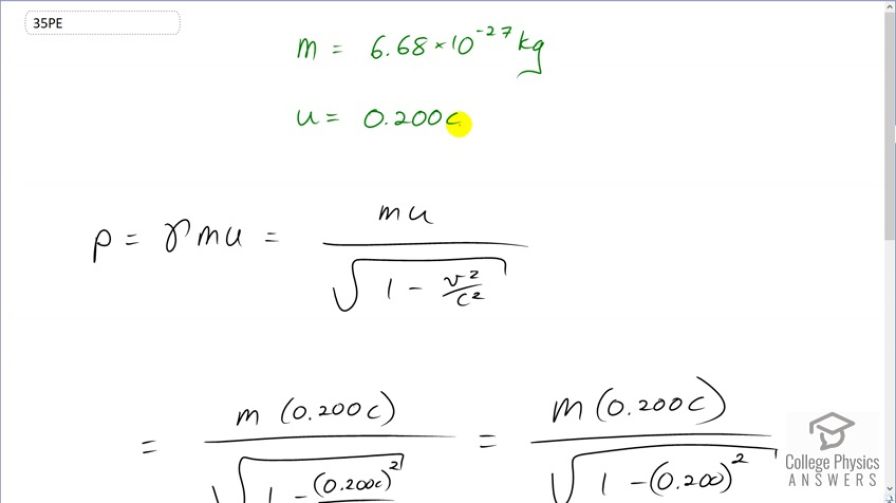 35PE
m = 6.68×10⁻²⁷ kg
u = 0.200c
p = γmu = mu / √(1 - v²/c²)
= m(0.200c) / √(1 - (0.200c)² = m(0.200c) / √(1 - (0.200)²
College Physics
ANSWERS